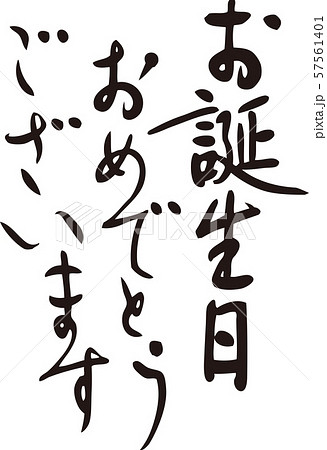 お誕生日
おめでとう
ございます
PIXTA
pixta.jp - 57561401